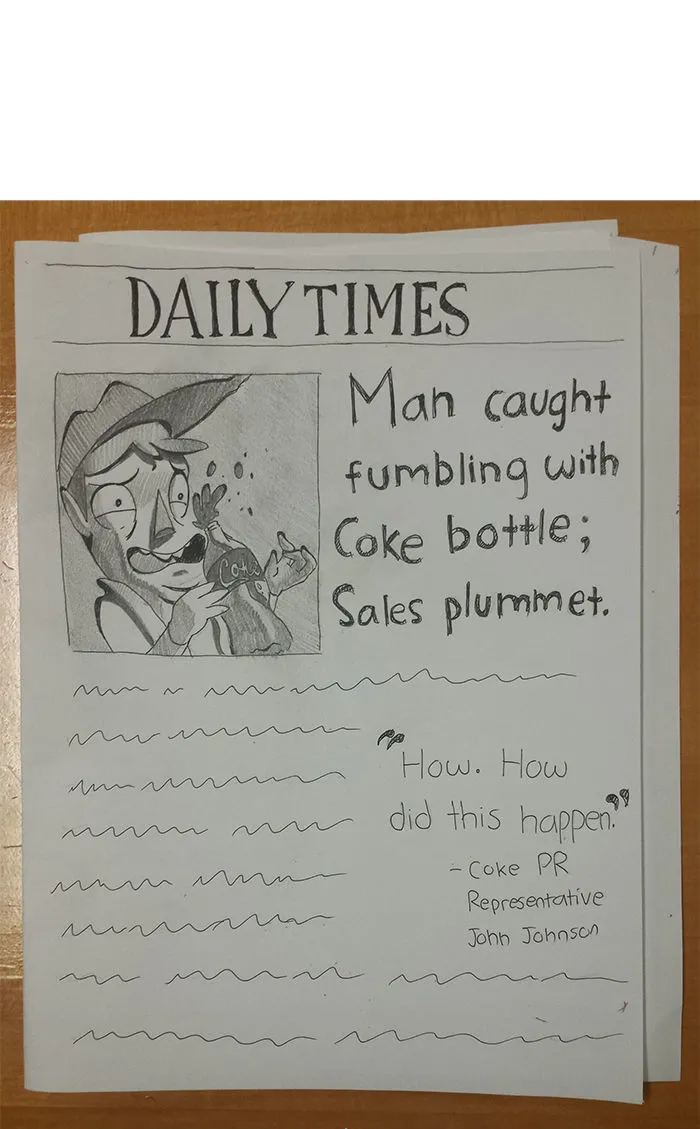 DAILY TIMES
Man caught
fumbling with
Coke bottle;
Sales plummet.
Coke
"How. How
did this happen."
- Coke PR
Representative
John Johnson